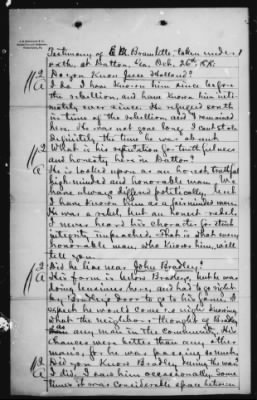 Testimony of E B. Bramlette, taken under
oath at Dalton, Ga. Oct. 26th, 1878.
Q Do you Know Jesse Holland?
A I do I have Known him since before
the rebellion, and have Known him inti-
mately ever since. He refugeed south
in time of the rebellion and I remained
here. He was not gone long I cant state
definitely the time he was absent.
Q What is his reputation for truthfulness
and honesty here in Dalton?
A He is looked upon as an honest, truthful
high minded and honorable man. We
have always differed politically but
I have Known him as a fair minded man.
He was a rebel, but an honest rebel.
I never heard his character for truth
integrity impeached. That is what every
honorable man, who Knows him, will
tell you.
Q Did he live near John Bradley?
A His farm is below Bradleys, but he was
doing business here, and had to go right
by Bradley's door to go to his farm. I
expect he would come as nigh Knowing
what the neighbors thought of Bradley
as any man in the community. His
chances were better than any other
mans, for he was passing so much.
Q Did you Know Bradley during the war?
A I did. I saw him occasionally. Some
times it was considerable space between